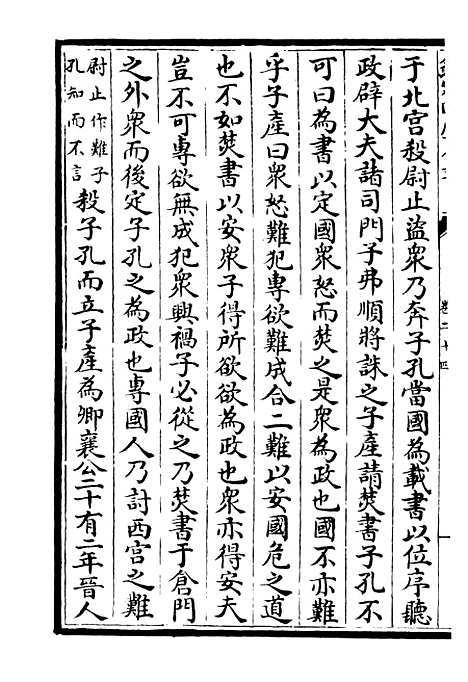 于北宫殺尉止盜衆乃奔子孔當國為載書以位序聽
政辟大夫諸司門子弗順將誅之子產請焚書子孔不
可曰為書以定國衆怒而焚之是衆為政也國不亦難
乎子產曰衆怒難犯專欲難成合二難以安國危之道
也不如焚書以安衆子得所欲欲為政也衆亦得安夫
豈不可專欲無成犯衆興禍子必從之乃焚書于倉門
之外衆而後定子孔之為政也專國人乃討西宫之難
尉止作難子
孔知而不言
殺子孔而立子產為卿襄公二十有二年晉人
卷二十四